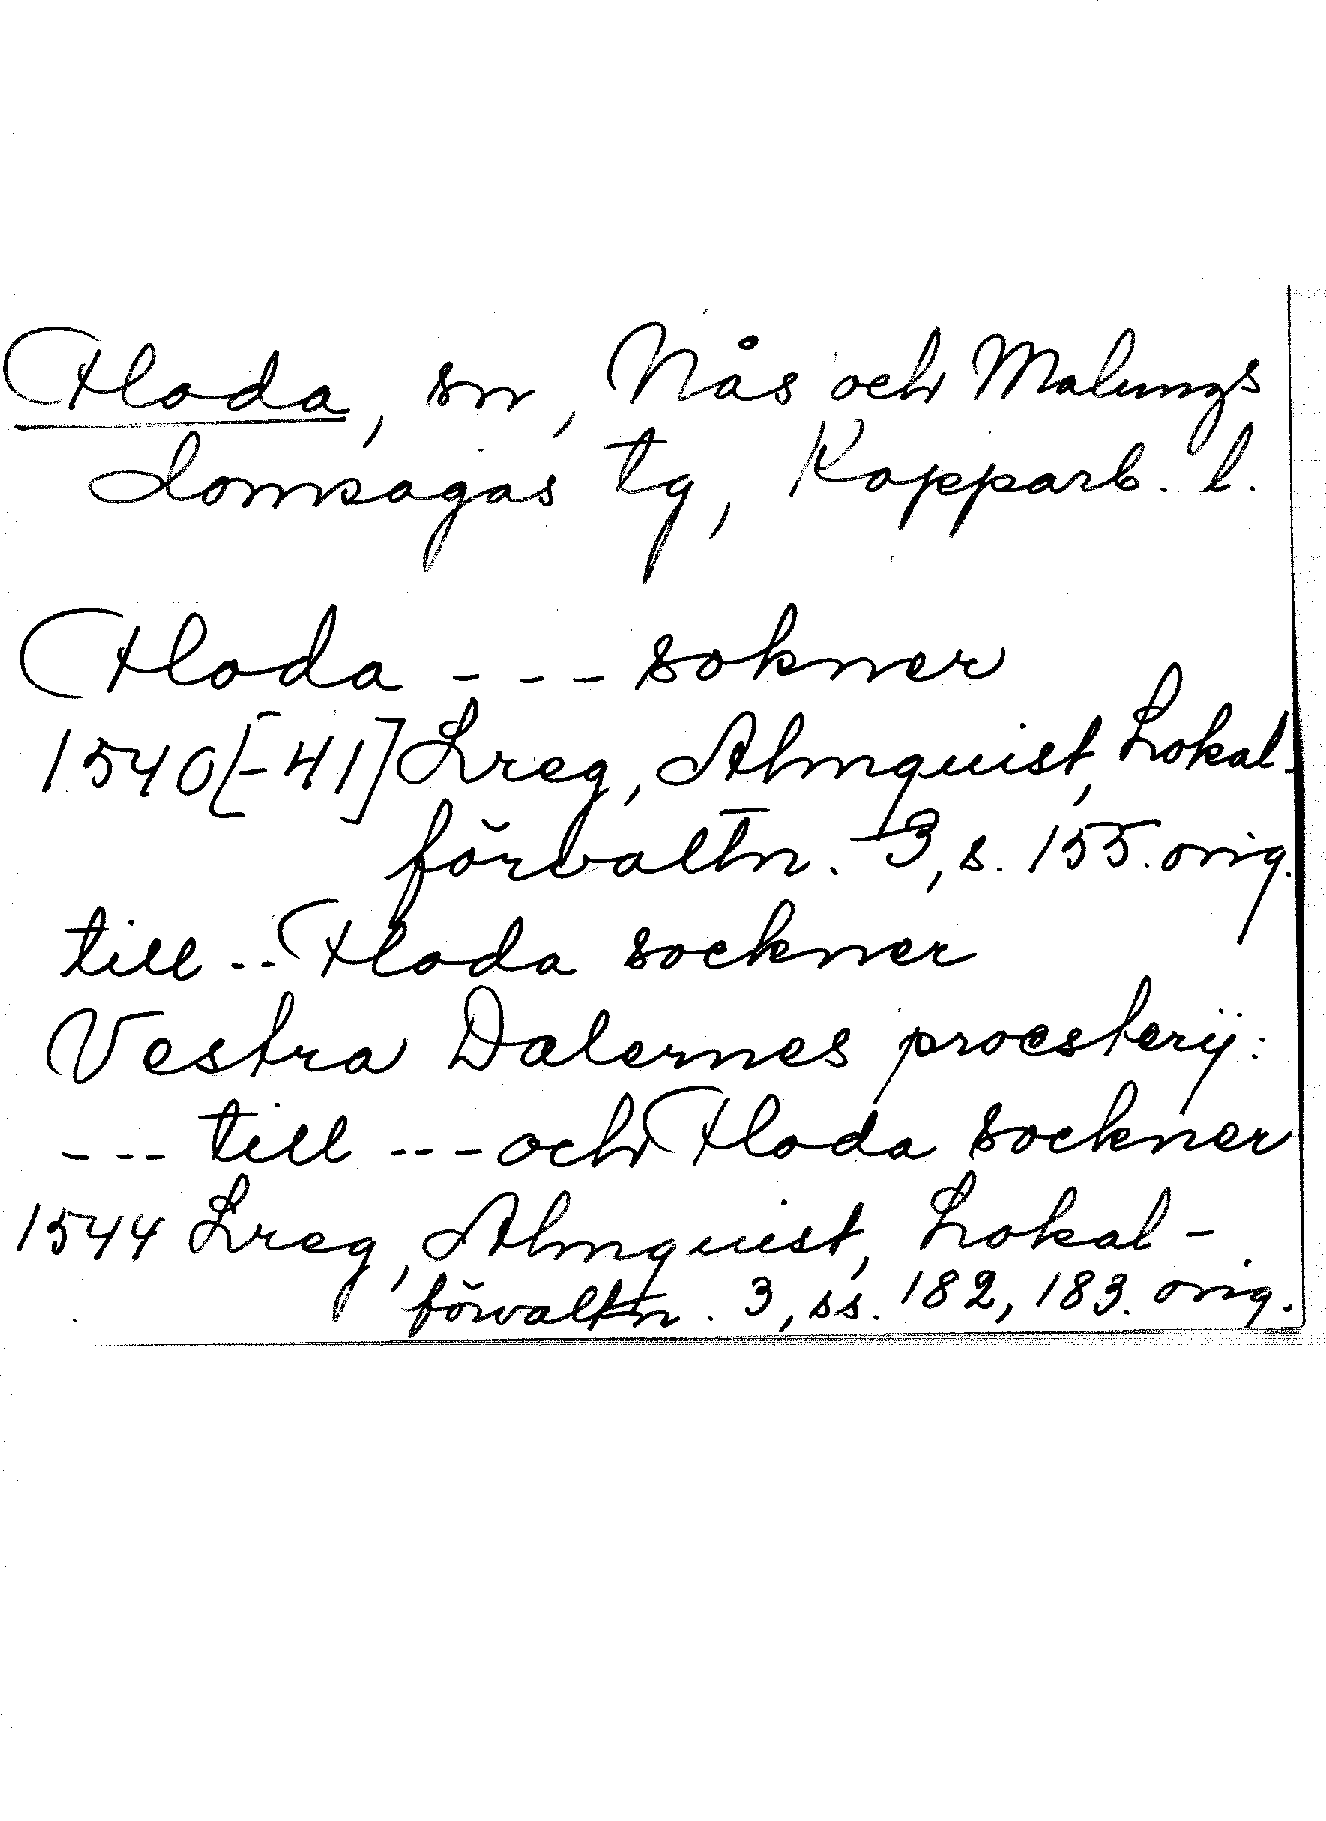 Floda, sn, Nås och Malungs
domsagas tg, Kopparb. l.
Floda --- sokner
1540[-41] Lreg, Almquist, Lokal-
förvaltn. 3, s. 155. orig.
till -- Floda sockner
Vestra Dalernes proesterij:
--- till --- och Floda sockner
1544 Lreg, Almquist, Lokal-
förvaltn. 3, ss. 182, 183. orig.